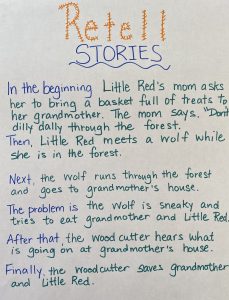 Retell
STORIES
In the beginning Little Red's mom asks
her to bring a basket full of treats to
her grandmother. The mom says, "Don't
dilly dally through the forest.
Then, Little Red meets a wolf while
she is in the forest.
Next, the wolf runs through the forest
and goes to grandmother's house.
The problem is the wolf is sneaky and
tries to eat grandmother and Little Red.
After that the woodcutter hears what
is going on at grandmother's house.
Finally, the woodcutter saves grandmother
and Little Red.